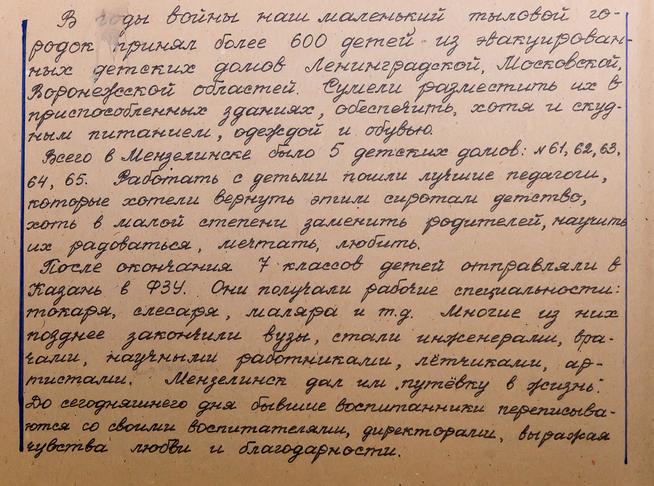 В годы войны наш маленький тыловой го-
родок принял более 600 детей из эвакуирован-
ных детских домов Ленинградской, Московской,
Воронежской областей. Сумели разместить их в
приспособленных зданиях, обеспечить, хотя и скуд-
ным питанием, одеждой и обувью.
Всего в Мензелинске было 5 детских домов: №61, 62, 63,
64, 65. Работать с детьми пошли лучшие педагоги,
которые хотели вернуть этим сиротам детство,
хоть в малой степени заменить родителей, научить
их радоваться, мечтать, любить.
После окончания 7 классов детей отправляли в
Казань в ФЗУ. Они получали рабочие специальности:
токаря, слесаря, маляра и т.д. Многие из них
позднее закончили вузы, стали инженерами, вра-
чами, научными работниками, лётчиками, ар-
тистами. Мензелинск дал им „путёвку в жизнь".
До сегодняшнего дня бывшие воспитанники переписыва-
ются со своими воспитателями, директорами, выражая
чувства любви и благодарности.